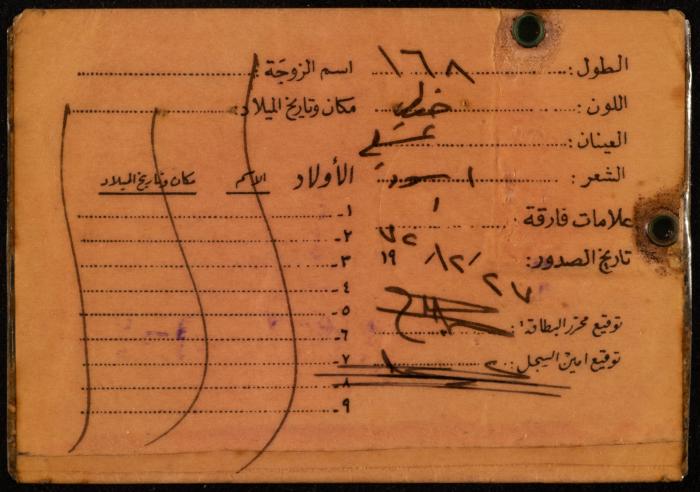 الطول: ١٦٨
اللون: حنطي
العينان: عسلي
الشعر: اسود
علامات فارقة: ١
تاريخ الصدور: ٢٧/١٢/١٩٧٢
توقيع محرر البطاقة:
توقيع امين السجل:
اسم الزوجة:
مكان وتاريخ الميلاد:
الأولاد الاسم مكان وتاريخ الميلاد
١-
٢-
٣-
٤-
٥-
٦-
٧-
٨-
٩-